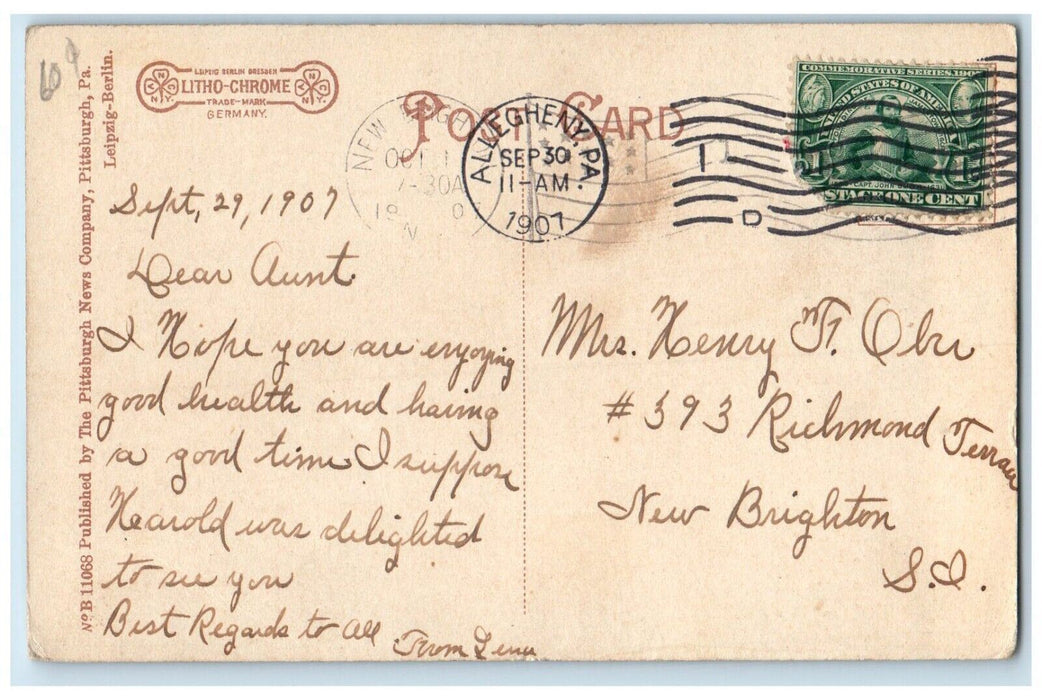 60
LEIPZIG BERLIN DRESDEN
LITHO-CHROME
TRADE-MARK
GERMANY.
POST CARD
NEW BRIGH
OCT 1
7-30A
ALLEGHENY, PA.
SEP 30
11-AM.
1907
1
D
COMMEMORATIVE SERIES 1907
UNITED STATES OF AMERICA
CAPT. JOHN SMITH
POSTAGE ONE CENT
No B 11068 Published by The Pittsburgh News Company, Pittsburgh, Pa.
Leipzig-Berlin.
Sept, 29, 1907
Dear Aunt
I Hope you are enjoying
good health and having
a good time I suppose
Hearold was delighted
to see you
Best Regards to All
From Lena
Mrs. Henry F. Obr
# 393 Richmond Terrace
New Brighton
S.I.